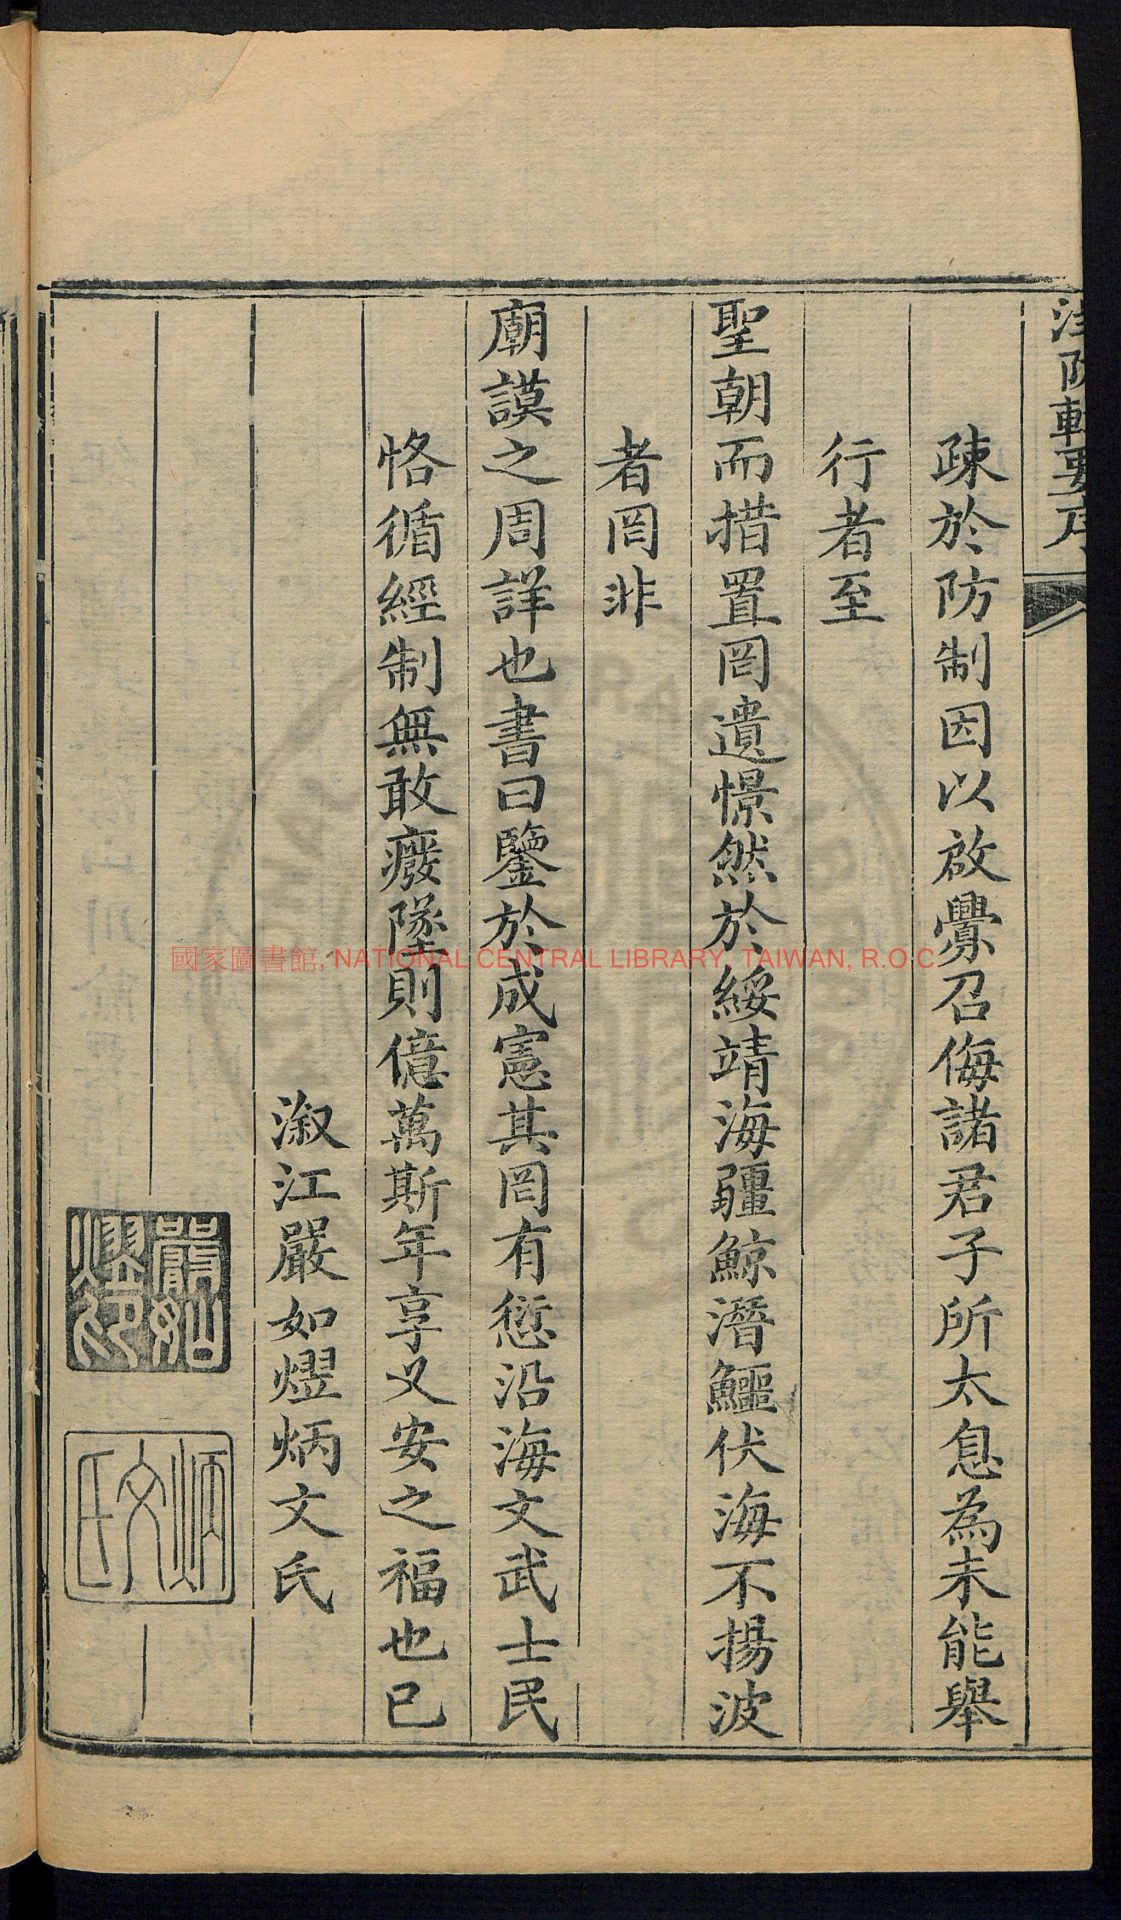 洋防輯要序
疎於防制因以啟釁召侮諸君子所太息為未能舉
行者至
聖朝而措置罔遺憬然於綏靖海疆鯨潛鱷伏海不揚波
者罔非
廟謨之周詳也書曰鑒於成憲其罔有愆沿海文武士民
恪循經制無敢癈墜則億萬斯年享乂安之福也已
溆江嚴如熤炳文氏
嚴如熤印
炳文氏
國家圖書館, NATIONAL CENTRAL LIBRARY, TAIWAN, R.O.C